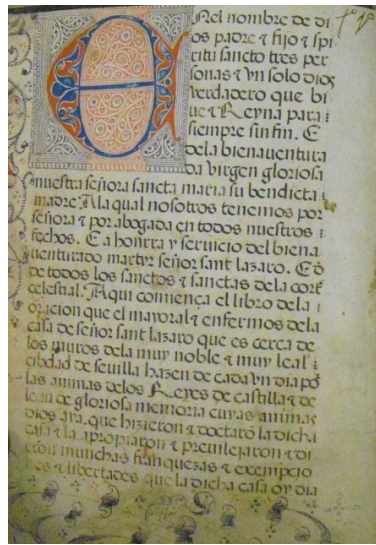 Nel nombre de di
os padre ⁊ fijo ⁊ spi
ritu sancto tres per
sonas ⁊ vn solo dios
verdadero que bi
ue ⁊ Reyna para
siempre sin fin. E
dela bienauentura
da virgen gloriosa
nuestra señora sancta maria su bendicta
madre Ala qual nosotros tenemos por
señora ⁊ por abogada en todos nuestros
fechos. E a honrra y seruicio del biena
uenturado martyr señor sant lazaro. E cõ
de todos los sanctos ⁊ sanctas dela corte
celestial. Aqui comiença el libro dela
oracion que el mayoral ⁊ enfermos dela
casa de señor sant lazaro que es cerca de
los muros dela muy noble ⁊ muy leal
cibdad de seuilla hazen de cada vn dia por
las animas delos Reyes de castilla ⁊ de
leon de gloriosa memoria cuyas animas
dios aya. que hizieron ⁊ doctarõ la dicha
casa ⁊ la apropiaron ⁊ preuilejaron ⁊ di
eron munchas franquezas ⁊
⁊ libertades que la dicha casa oy dia